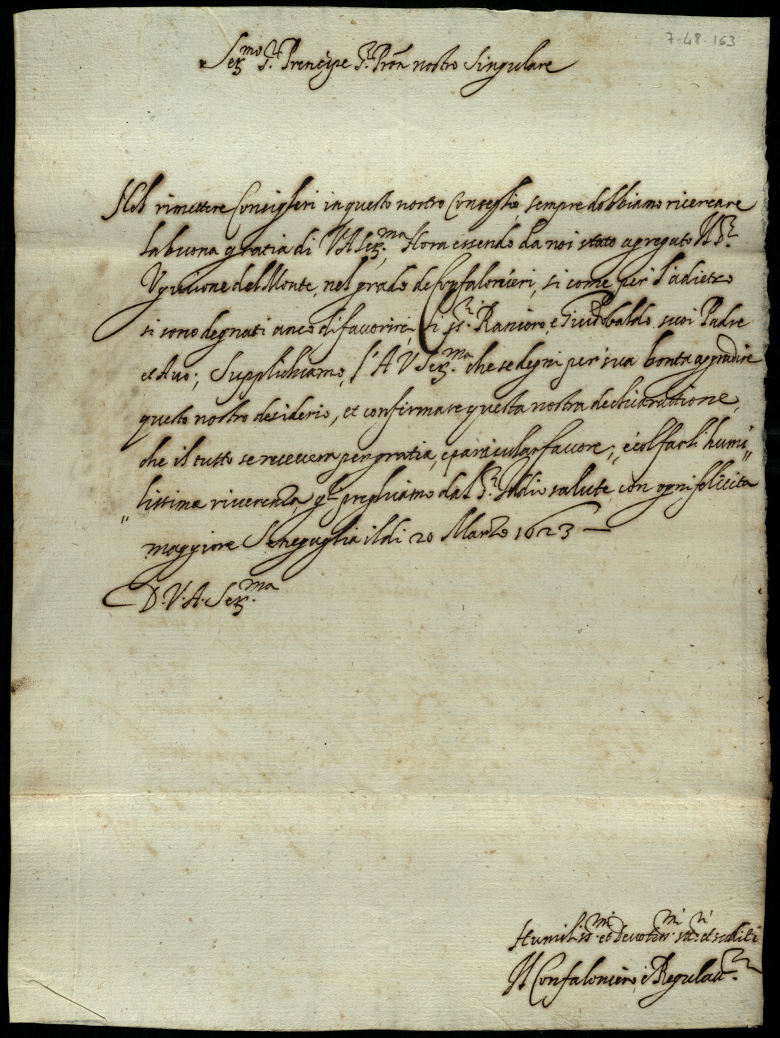 7-48-163
Ser.mo S.r Prencipe S.r Pron nostro Singulare
Nel rimettere Consiglieri in questo nostro Conseglio, sempre dobbiamo ricercare
la buona gratia di V.A. Ser.ma Hora essendo da noi stato agregato Il S.r
Uguccione del Monte, nel grado de Confalonieri, si come per l'adietro
si sono degnati anco di favorire, li ss.ri Raniero, e Giudobaldo suoi Padre
et Avo; Supplichiamo, l'A V Ser.ma che se degni per sua bontà aggradire
questo nostro desiderio, et confirmare questa nostra dechiaratione,
che il tutto se receverà per gratia, e particular favore; e col farli humi
lissima riverenza, gli preghiamo dal S.r Iddio salute con ogni felicita
maggiore Seneguglia il di 20 Marzo 1623
D. V. A. Ser.ma
Humiliss.mi et Devotiss.mi ser.ri et sudditi
Il Confaloniero, e Regulat.ri